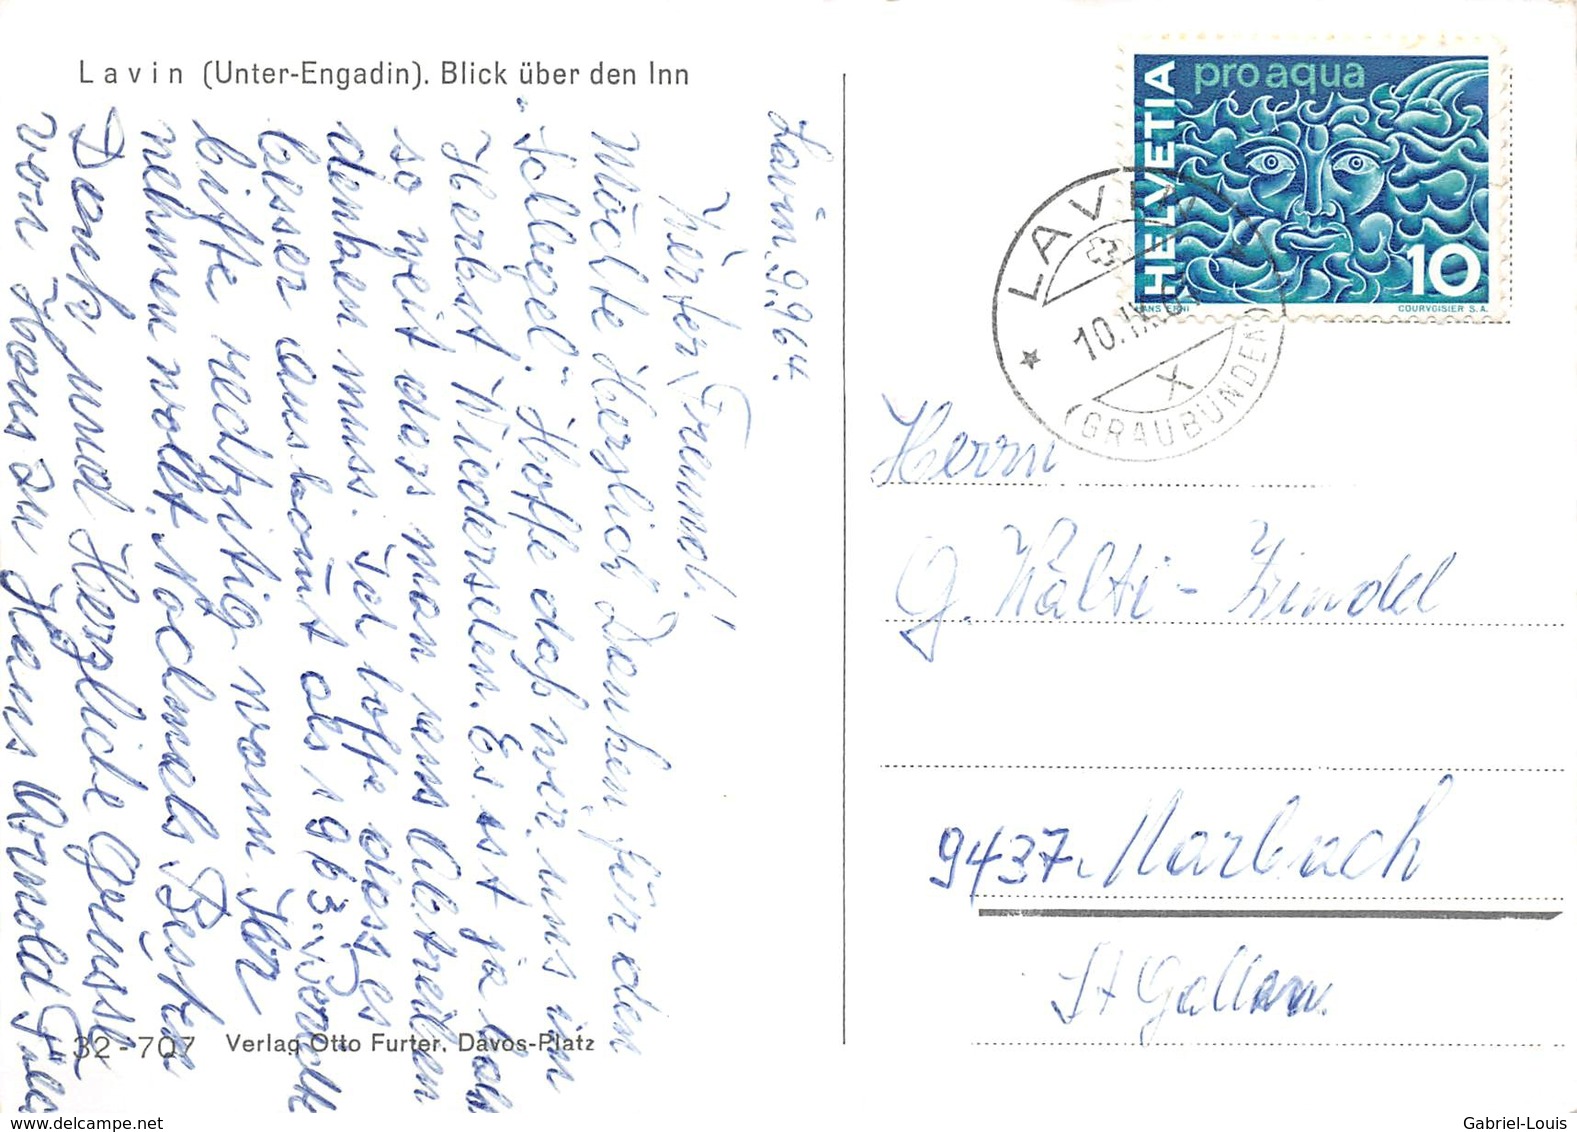 Lavin (Unter-Engadin). Blick über den Inn
Lavin, 9.9.64.
Werter Freund!
Möchte Herzlich Danken für den
"Schlegel." Hoffe daß wir uns im
Herbst Wiedersehen. Es ist ja bald
so weit das man ans Abteilen
denken muss. Ich hoffe dass es
besser aus kommt als 1963. Werdet
bitte rechtzitig wann Ihr
nehmen wollt. Nochmels Besten
Dank, und Herzliche Grüsse
von Haus zu Haus Arnold
32-707 Verlag Otto Furter, Davos-Platz
pro aqua
HELVETIA
10
HANS ERNI
COURVOISIER S.A.
LAVIN
10.IX.
X
(GRAUBÜNDEN)
Herrn
G. Wälti-Zindel
9437. Marbach
St Gallen.
Gabriel-Louis
www.delcampe.net